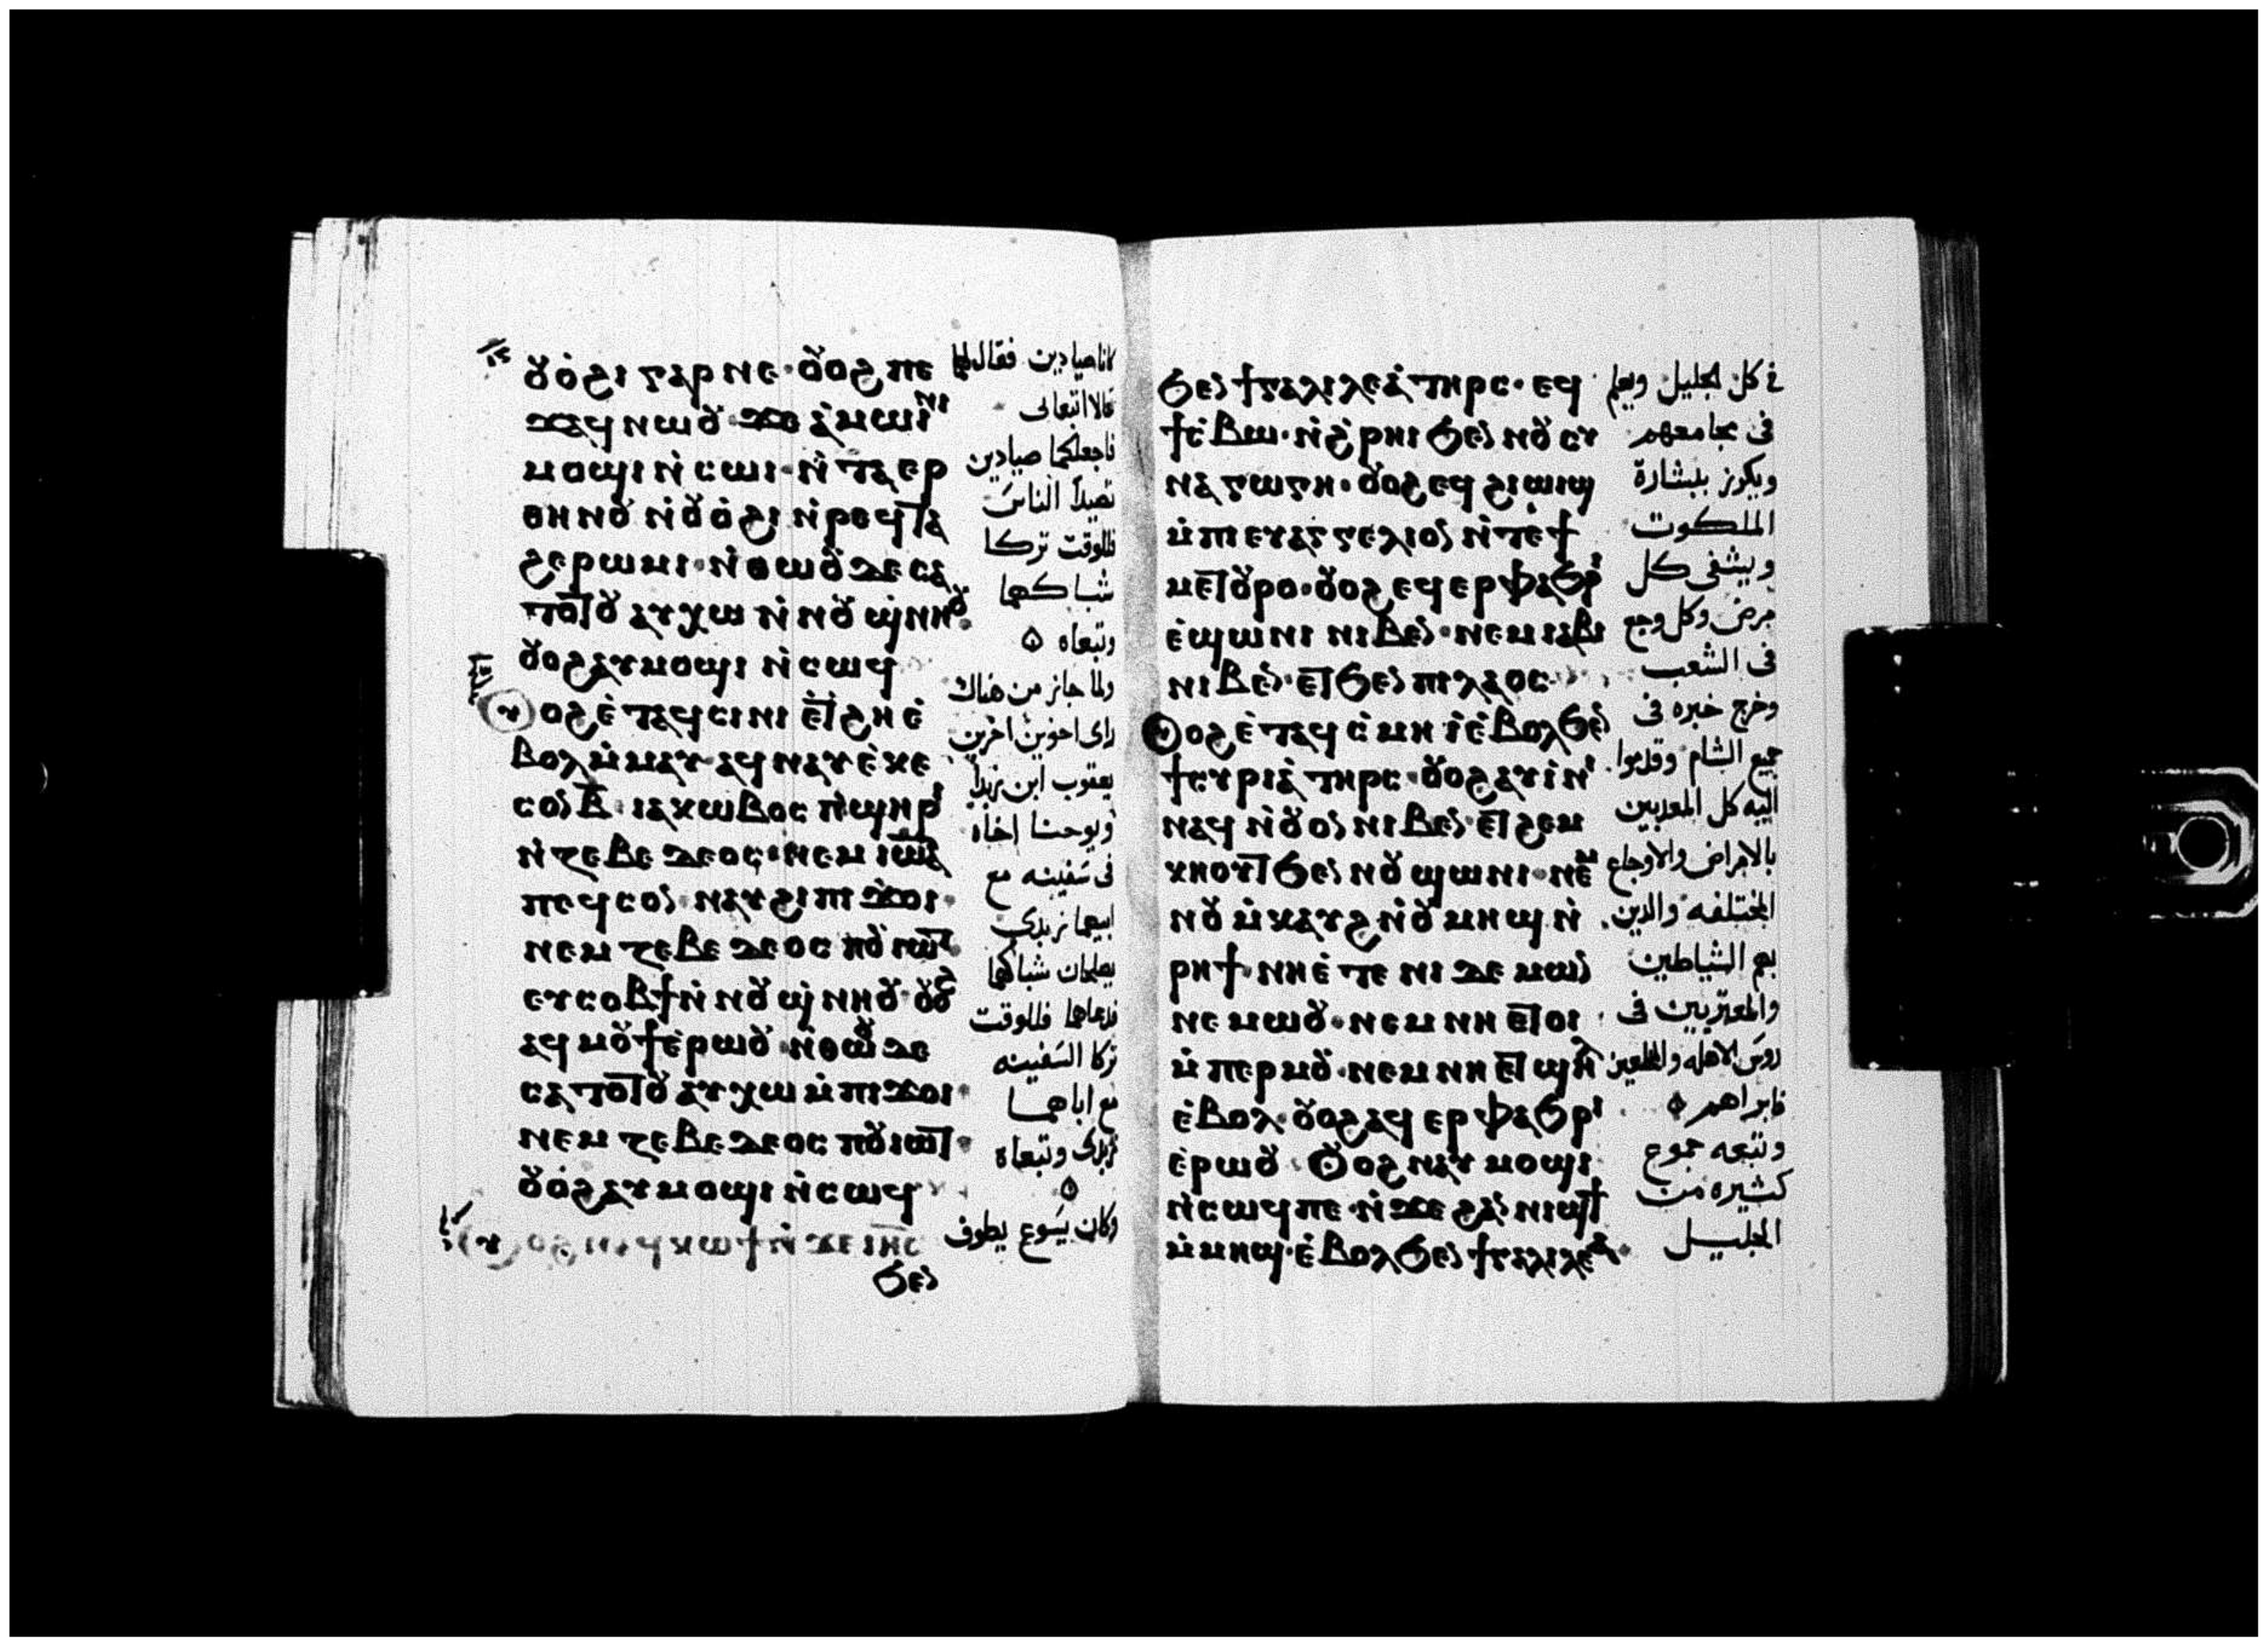 ⲟⲩⲟ̇ϩⲓ ⲅⲁⲣ ⲛⲉ · ⲟⲩⲟϩ ⲡⲉ
ϫⲁϥ ⲛⲱⲟⲩ ϫⲉ ⲁ̇ⲙⲱⲓⲛⲓ
ⲙⲟϣⲓ ⲛ̇ⲥⲱⲓ · ⲛ̇ⲧⲁⲉⲣ
ⲑⲏⲛⲟⲩ ⲛ̇ⲟⲩⲟ̇ϩⲓ ⲛ̇ⲣⲉϥⲧⲁ
ϩⲉⲣⲱⲙⲓ · ⲛ̇ⲑⲱⲟⲩ ⲇⲉ ⲥⲁ
ⲧⲟⲧⲟⲩ ⲁⲩⲭⲱ ⲛ̇ⲛⲟⲩϣ̇ⲛⲏⲟⲩ
ⲟⲩⲟϩ ⲁⲩⲙⲟϣⲓ ⲛ̇ⲥⲱϥ
ⲟⲩⲟϩ ⲉ̇ⲧⲁϥⲥⲓⲛⲓ ⲉ̇ⲧϩⲏ ⲉ̇
ⲃⲟⲗ ⲙ̇ⲙⲁⲩ · ⲁϥⲛⲁⲩ ⲉ̇ⲕⲉ
ⲥⲟⲛ ⲃ̅ · ⲓⲁⲕⲱⲃⲟⲥ ⲡ̇ϣⲏⲣⲓ
ⲛ̇ⲍⲉⲃⲉⲇⲉⲟⲥ · ⲛⲉⲙ ⲓⲱⲁ
ⲡⲉϥⲥⲟⲛ ⲛⲁⲩϩⲓ ⲡⲓϫⲟⲓ ·
ⲛⲉⲙ ⲍⲉⲃⲉⲇⲉⲟⲥ ⲡⲟⲩⲓⲱⲧ
ⲉⲩⲥⲟⲃϯ ⲛ̇ⲛⲟⲩϣ̇ⲛⲏⲟⲩ · ⲟⲩⲟϩ
ⲁϥⲙⲟⲩϯ ⲉ̇ⲣⲱⲟⲩ · ⲛ̇ⲑⲱⲟⲩ ⲇⲉ
ⲥⲁⲧⲟⲧⲟⲩ ⲁⲩⲭⲱ ⲙ̇ⲡⲓϫⲟⲓ ·
ⲛⲉⲙ ⲍⲉⲃⲉⲇⲉⲟⲥ ⲡⲟⲩⲓⲱⲧ ·
ⲟⲩⲟ̇ϩ ⲁⲩⲙⲟϣⲓ ⲛ̇ⲥⲱϥ
ⲟⲩⲟϩ ⲛⲁϥⲕⲱϯ ⲛ̇ϫⲉ ⲓⲏⲥ
ϧⲉⲛ
كانا صيادين فقال لهما
تعالا اتبعانى
فاجعلكما صيادين
تصيدا الناس
فللوقت تركا
شباكهما
وتبعاه
ولما جاز من هناك
راى اخوين اخرين
يعقوب ابن زبدا
ويوحنا اخاه
فى سفينه مع
ابيهما زبدى
يصلحان شباكهما
فدعاهما فللوقت
تركا السفينه
مع اباهما
زبدى وتبعاه
وكان يسوع يطوف
ϧⲉⲛ ϯⲅⲁⲗⲓⲗⲉⲁ̇ ⲧⲏⲣⲥ · ⲉϥ
ϯⲥ̇ⲃⲱ · ⲛ̇ϩ̇ⲣⲏⲓ ϧⲉⲛ ⲛⲟⲩⲥⲩ
ⲛⲁⲅⲱⲅⲏ · ⲟⲩⲟϩ ⲉϥϩⲓⲱⲓϣ
ⲙ̇ⲡⲓⲉⲩⲁⲅⲅⲉⲗⲓⲟⲛ ⲛ̇ⲧⲉ ϯ
ⲙⲉⲧⲟⲩⲣⲟ · ⲟⲩⲟϩ ⲉϥⲉⲣⲫⲁϧⲣⲓ
ⲉ̇ϣⲱⲛⲓ ⲛⲓⲃⲉⲛ · ⲛⲉⲙ ⲓⲁⲃⲓ
ⲛⲓⲃⲉⲛ · ⲉⲧϧⲉⲛ ⲡⲓⲗⲁⲟⲥ
ⲟⲩⲟϩ ⲉ̇ⲧⲁϥⲥ̇ⲙⲏ ⲓ̇ ⲉ̇ⲃⲟⲗ ϧⲉⲛ
ϯⲥⲩⲣⲓⲁ̇ ⲧⲏⲣⲥ · ⲟⲩⲟϩ ⲁⲩⲓ̇ⲛⲓ
ⲛⲁϥ ⲛ̇ⲟⲩⲟⲛ ⲛⲓⲃⲉⲛ · ⲉⲧϩⲉⲙ
ⲕⲏⲟⲩⲧ ϧⲉⲛ ⲛⲟⲩϣⲱⲛⲓ · ⲛⲉⲙ
ⲛⲟⲩⲙ̇ⲕⲁⲩϩ ⲛ̇ⲟⲩⲙⲏϣ ⲛ̇
ⲣⲏϯ · ⲛⲏⲉ̇ⲧⲉ ⲛⲓⲇⲉⲙⲱⲛ
ⲛⲉⲙⲱⲟⲩ · ⲛⲉⲙ ⲛⲏ ⲉⲧⲟⲓ
ⲙ̇ⲡⲉⲣⲙⲟⲩ · ⲛⲉⲙ ⲛⲏ ⲉⲧϣⲏⲗ
ⲉ̇ⲃⲟⲗ · ⲟⲩⲟϩ ⲁϥⲉⲣⲫⲁϧⲣⲓ
ⲉ̇ⲣⲱⲟⲩ · ⲟⲩⲟϩ ⲛⲁⲩⲙⲟϣⲓ
ⲛ̇ⲥⲱϥ ⲡⲉ · ⲛ̇ϫⲉ ϩⲁⲛⲛⲓϣϯ
ⲙ̇ⲙⲏϣ · ⲉ̇ⲃⲟⲗ ϧⲉⲛ ϯⲅⲁⲗⲓⲗⲉⲁ ·
فى كل الجليل ويعلم
فى مجامعهم
ويكرز ببشارة
الملكوت
ويشفى كل
مرض وكل وجع
فى الشعب
وخرج خبره فى
جميع الشام وقدموا
اليه كل المعذبين
بالامراض والاوجاع
المختلفه والذين
بهم الشياطين
والمعتريين فى
روس الاهله والمخلعين
فابراهم
وتبعه جموع
كثيره من
الجليل